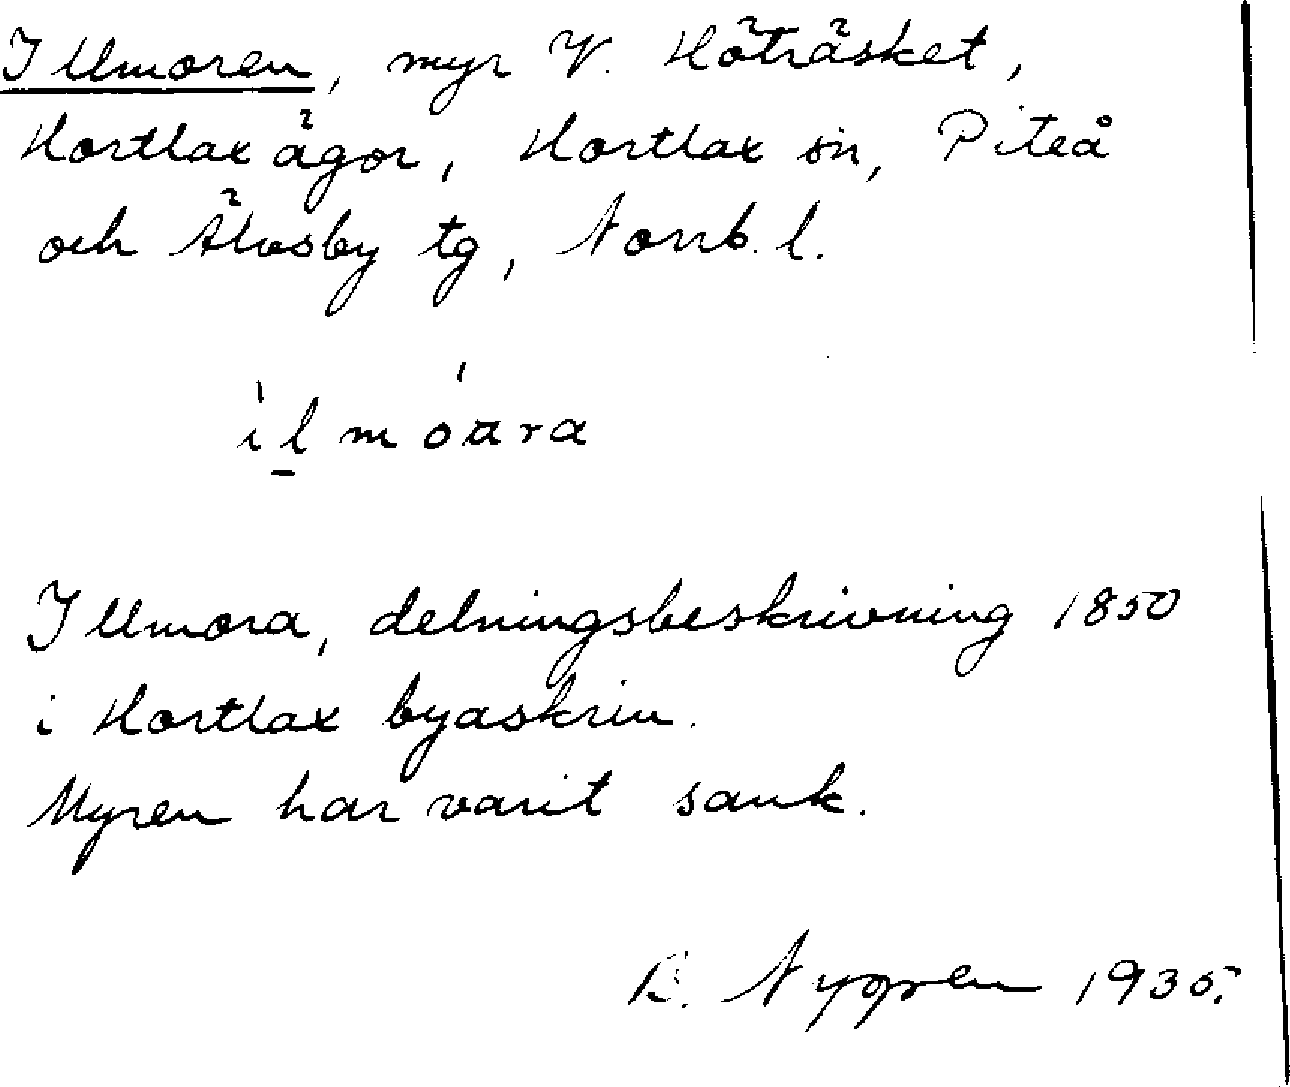 Illmoren, myr V. Höträsket,
Hortlax ägor, Hortlax sn, Piteå
och Älvsby tg, Norrb. l.
ìl̠móɑra
Illmora, delningsbeskrivning 1850
i Hortlax byaskrin.
Myren har varit sank.
B. Nygren 1935.